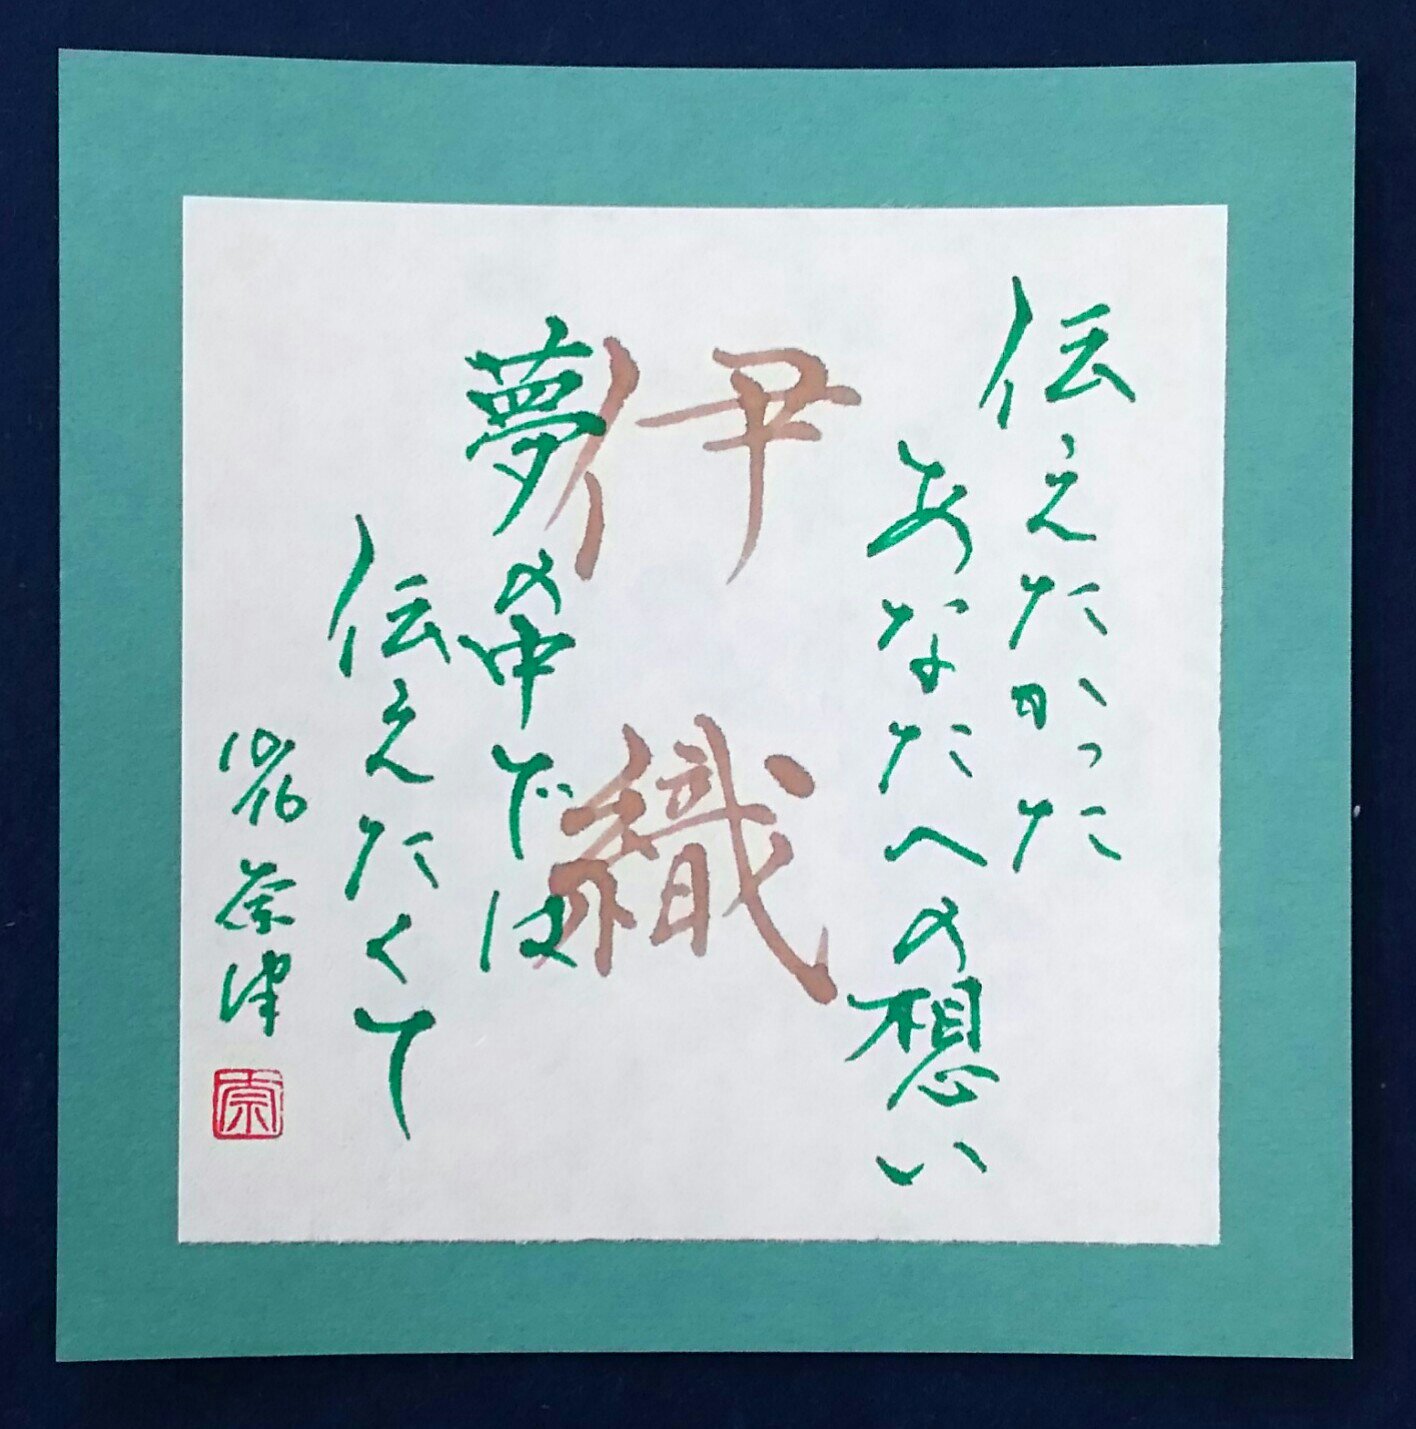 伝えたかった
あなたへの想い
伊織
夢の中では
伝えたくて
10/16
奈津
崇